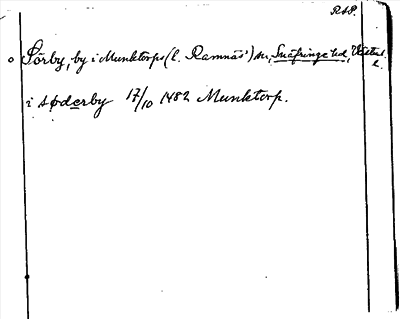 RAP.
Sörby, by i Munktorps (l. Ramnäs') sn, Snäfringe hd, Västml.
i søderby 17/10 1482 Munktorp.